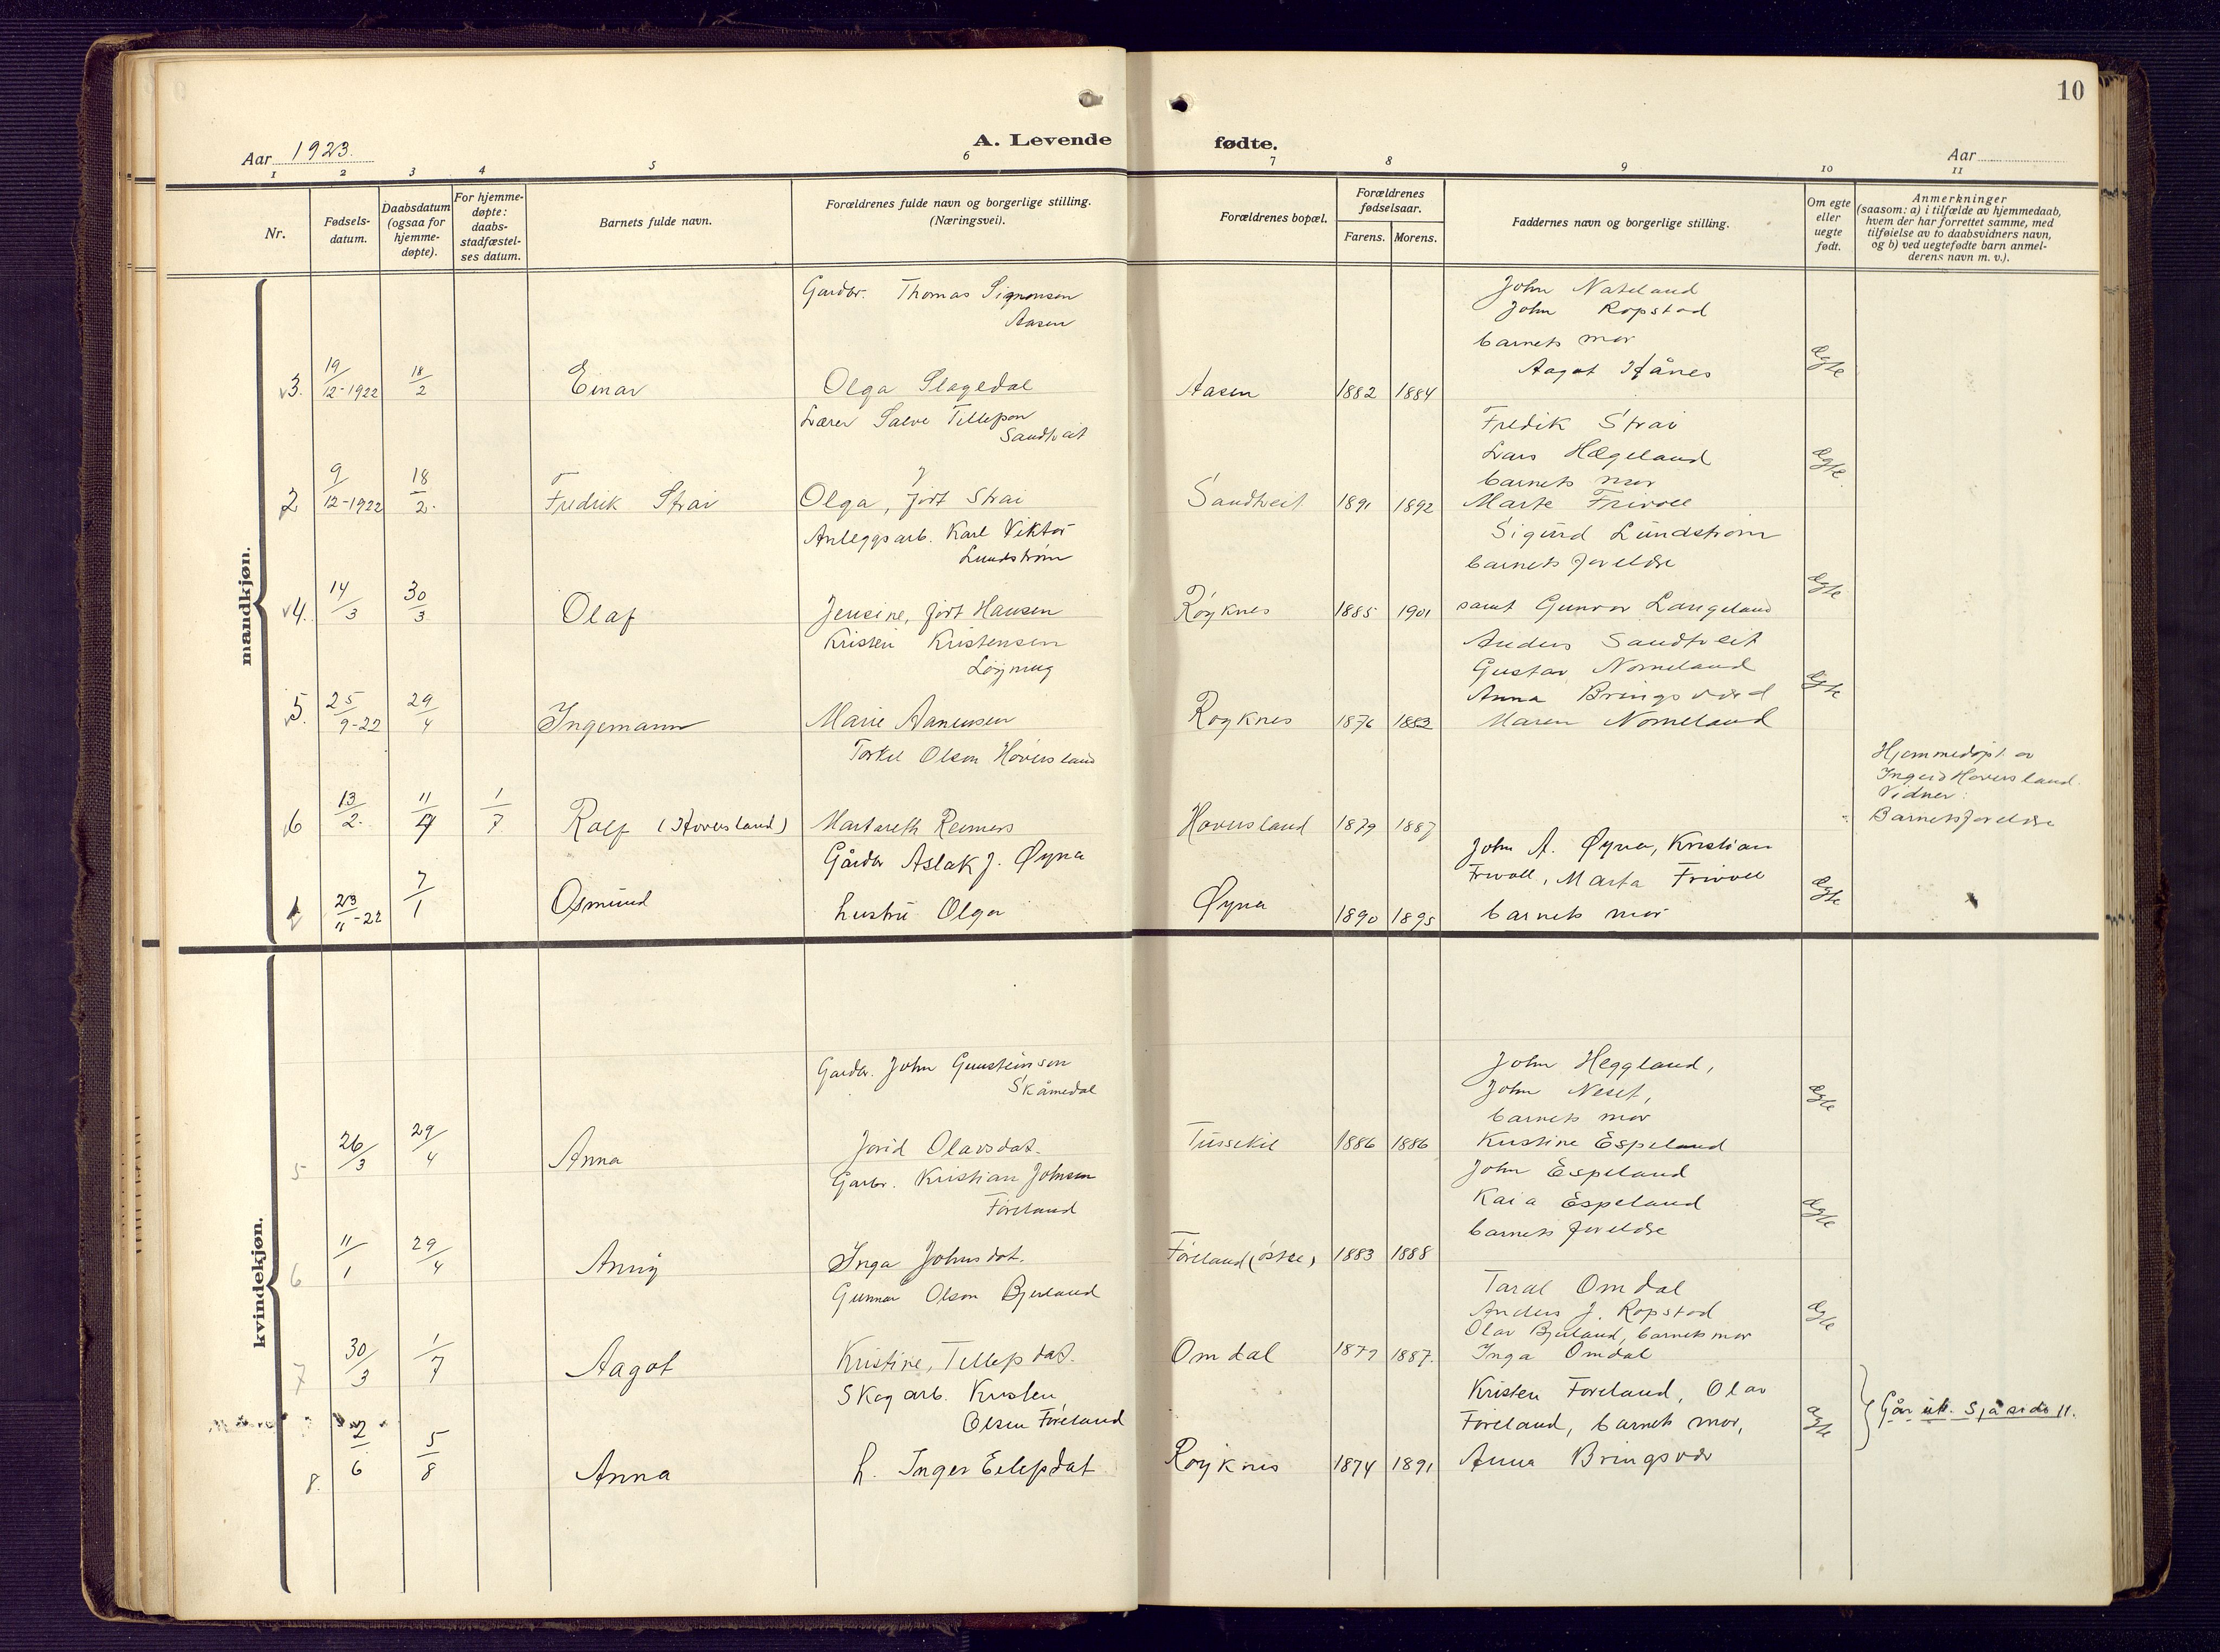 10
A. Levende fødte.
Aar 1923.
Aar
1 2 3 4 5 6 7 8 9 10 11
Nr.
Fødsels-
datum.
Daabsdatum
(ogsaa for
hjemme-
døpte).
For hjemme-
døpte:
daabs-
stadfæstel-
ses datum.
Barnets fulde navn.
Forældrenes fulde navn og borgerlige stilling.
(Næringsvei).
Forældrenes bopæl.
Forældrenes
fødselsaar.
Farens. Morens.
Faddernes navn og borgerlige stilling.
Om egte
eller
uegte
født.
Anmerkninger
(saasom: a) i tilfælde av hjemmedaab,
hvem der har forrettet samme, med
tilføielse av to daabsvidners navn,
og b) ved uegtefødte barn anmel-
derens navn m. v.).
mandkjøn.
Gardbr. Thomas Sigmonsen
Aasen
John Nateland
John Ropstad
barnets mor
Aagot Hånes
v3. 19/12-1922 18/2 Einar Olga Slagedal Aasen 1882 1884 Ægte
Lærer Salve Tellefson
Sandtveit
Fredik Strai
Lars Hægeland
barnets mor
2 9/12-1922 18/2. Fredrik Strai Olga, født Strai Sandtveit 1891 1892 Marte Frivoll Ægte
Anleggsarb. Karl Viktor
Lundstrøm
Sigurd Lundstrøm
barnets foreldre
v4. 14/3 30/3 Olaf Jensine, født Hansen Røyknes 1885 1901 samt Gunvor Langeland Ægte
Kristen Kristensen
Løyning
Anders Sandtveit
Gustav Nomeland
Anna Bringsværd
v5. 25/9-22 29/4 Ingemann Marie Aanensen Røyknes 1876 1883 Maren Nomeland Ægte
Torkel Olsen Hoversland
Hjemmedøpt av
Ingerd Hoversland.
Vidner:
Barnets foreldre
v6 13/2. 11/4 1/7 Rolf (Hoversland) Reimers Hoversland 1879 1887
Gårdbr Aslak J. Øyna
John A. Øyna, Kristian
Frivoll, Marta Frivoll
1 23/11-22 7/1 Osmund hustru Olga Øyna 1890 1895 barnets mor Ægte
kvindekjøn.
Gardbr. John Gunsteinsen
Skåmedal
John Heggland,
John Neset,
barnets mor
5 26/3 29/4 Anna Jorid Olavsdat. Tussekil 1886 1886 Kristine Espeland Ægte
Garbr. Kristian Johnsen
Føreland
John Espeland
Kaia Espeland
barnets foreldre
6 11/1 29/4 Anny Inga Johnsdat. Føreland (østre) 1883 1888 Ægte
Gunnar Olson Bjelland
Taral Omdal
Anders J. Ropstad
Olav Bjelland, barnets mor
7 30/3 1/7 Aagot Kristine, Tellefsdat. Omdal 1879 1887. Inga Omdal Ægte
Skogarb. Kristen
Olsen Føreland
Kristen Føreland, Olav
Føreland, barnets mor,
Går ut. Sjå side 11.
8. 2/6 5/8 Anna h. Inger Eilefsdat Røyknes 1874 1891 Anna Bringsvær ægte